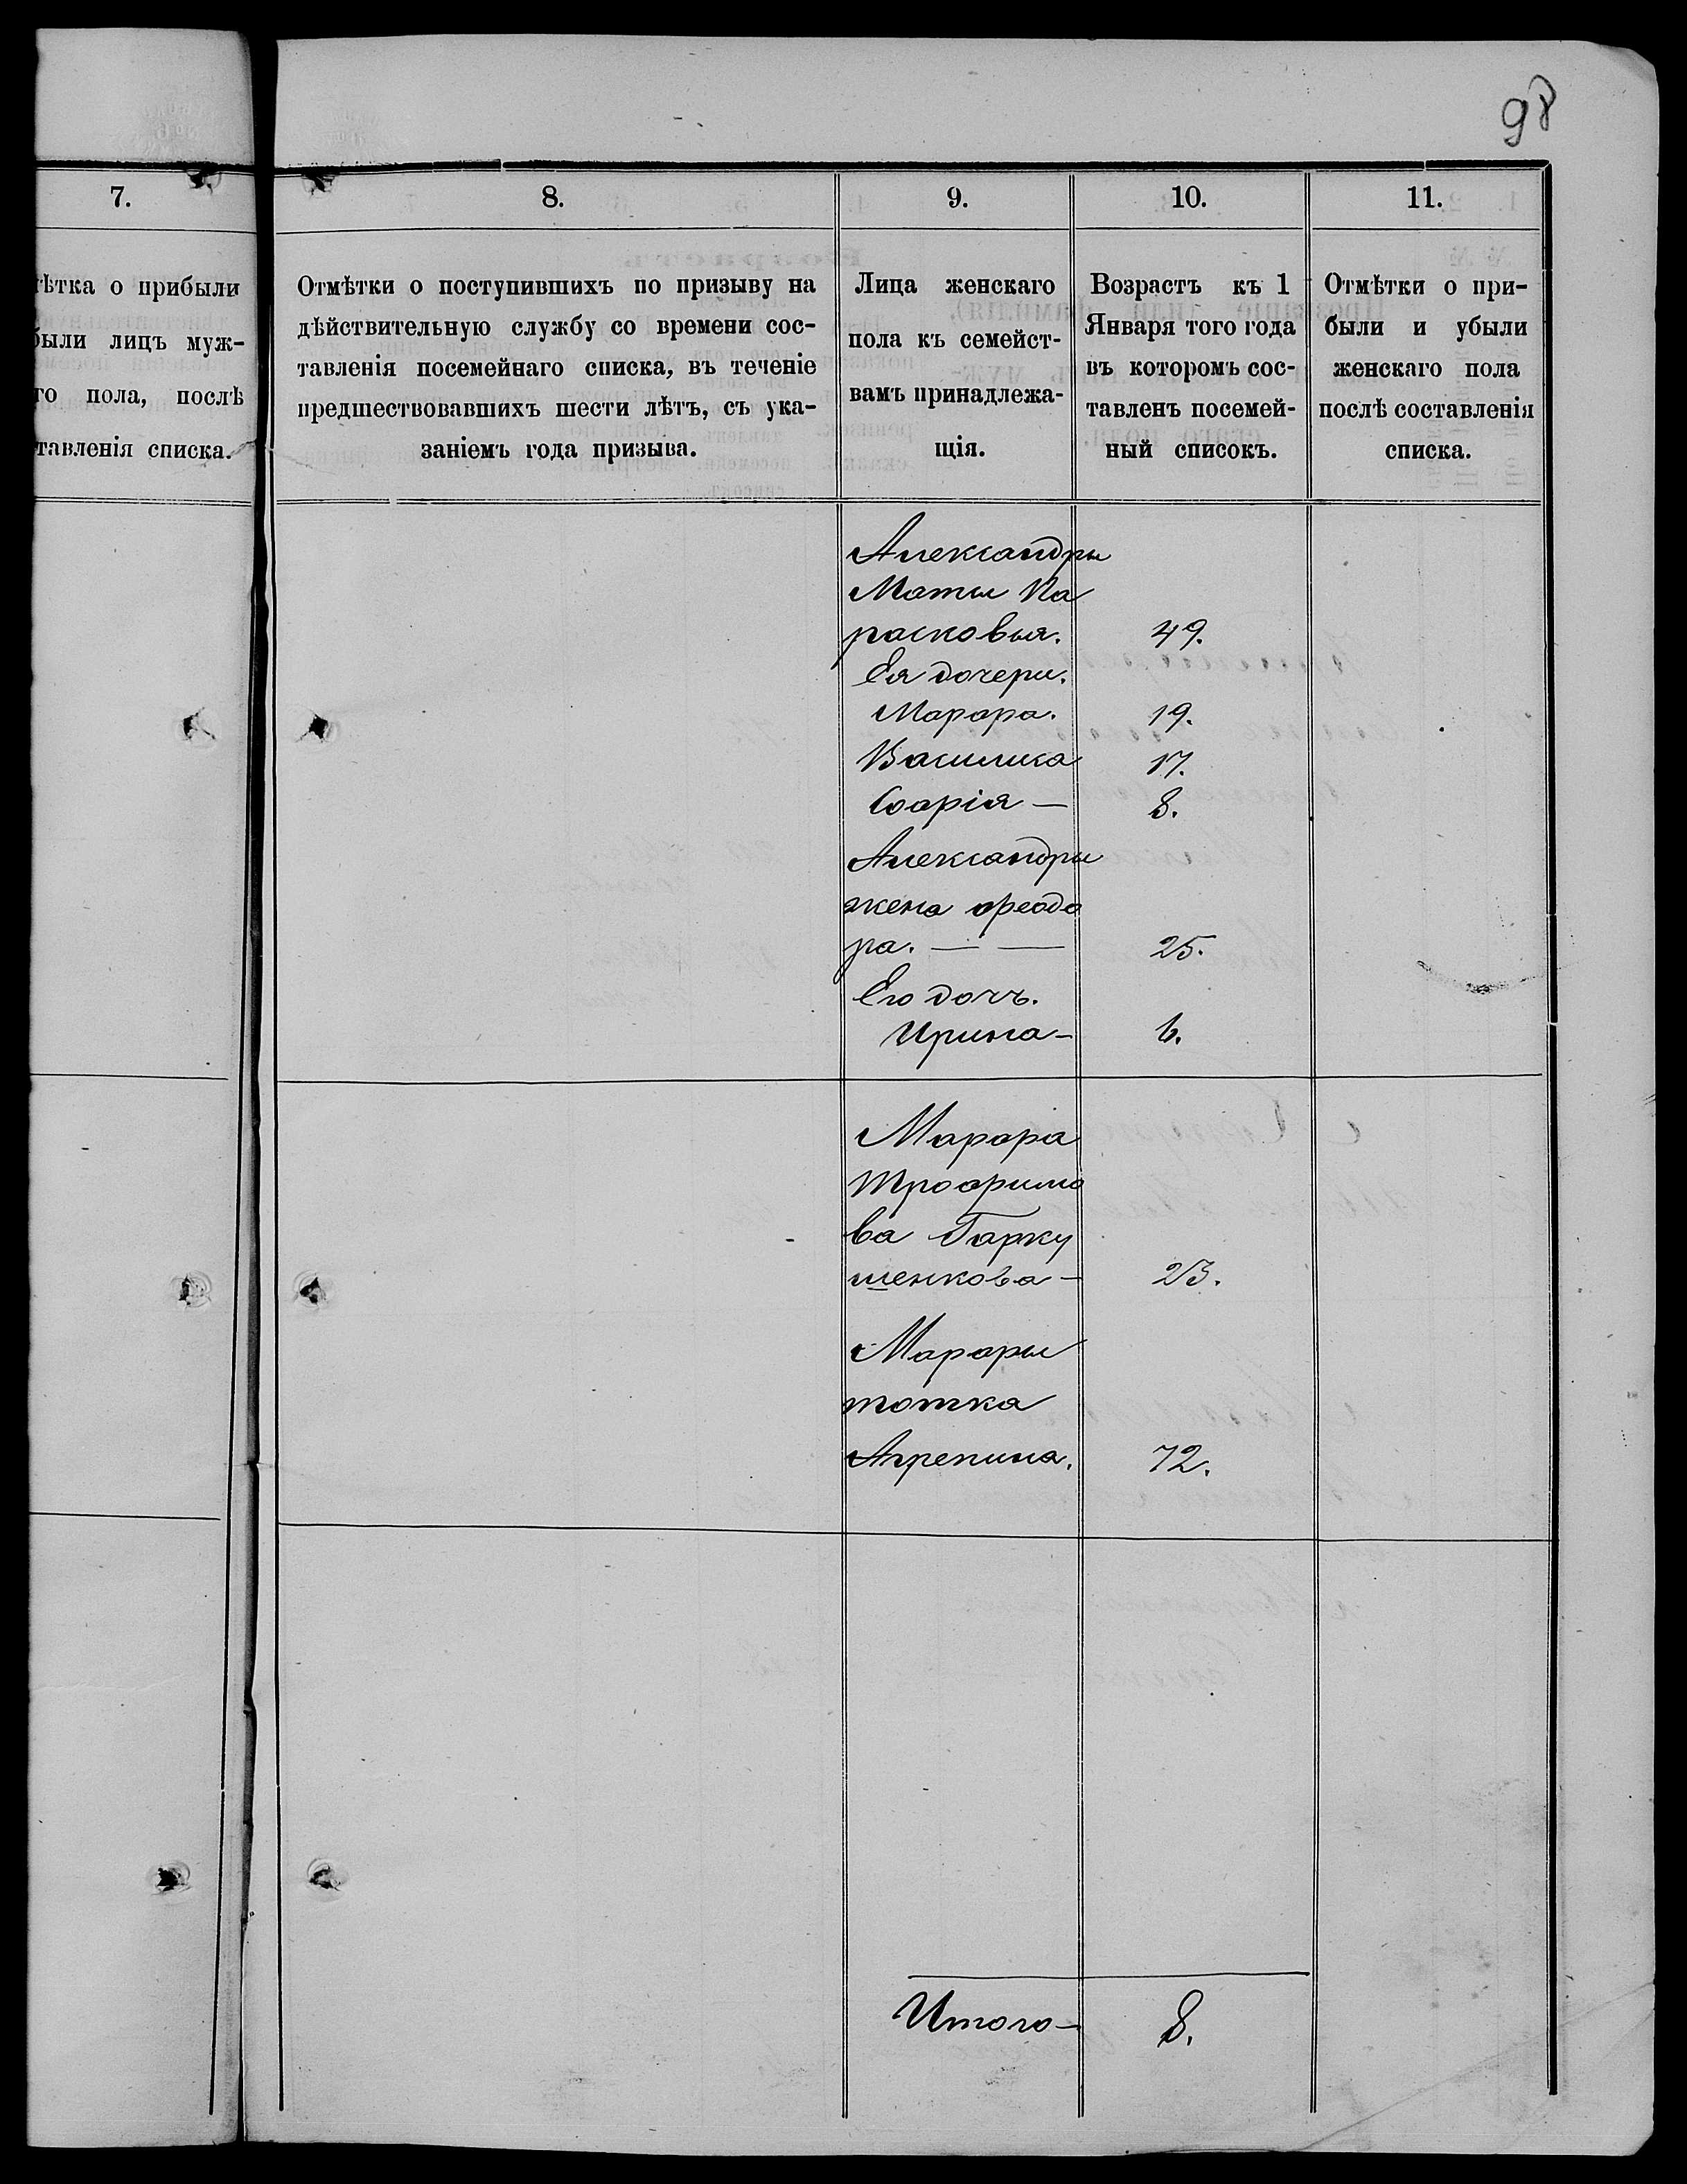 98
7.
8.
9.
10.
11.
ѣтка о прибыли
были лицъ муж-
го пола, послѣ
тавленія списка.
Отмѣтки о поступившихъ по призыву на
дѣйствительную службу со времени сос-
тавленія посемейнаго списка, въ теченіе
предшествовавшихъ шести лѣтъ, съ ука-
заніемъ года призыва.
Лица женскаго
пола къ семейст-
вамъ принадлежа-
щія.
Возрастъ къ 1
Января того года
въ которомъ сос-
тавленъ посемей-
ный списокъ.
Отмѣтки о при-
были и убыли
женскаго пола
послѣ составленія
списка.
Александры
Мотыи Па
расковыя. 49.
Ея дочери.
Марфа. 19.
Василиса 17.
Софія — 8.
Александры
жена Феодо
ра. — — 25.
Его дочъ.
Ирина - 6.
Марфа
Трофимо
ва Гарку
шенкова - 23.
Марфы
тотка
Агрепина. 72.
Итого - 8.